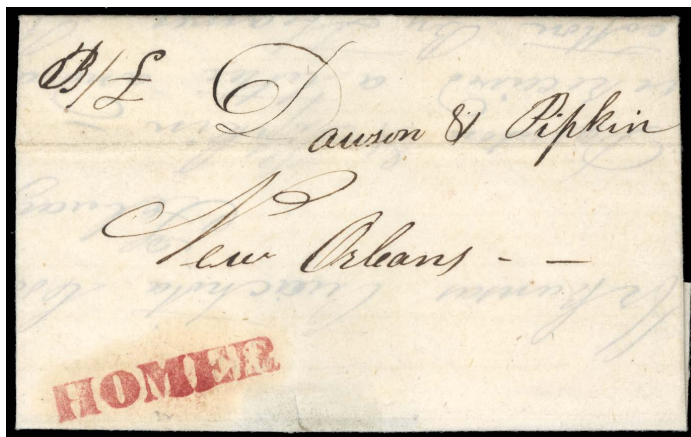 B/L Dawson & Pipkin
New Orleans - -
HOMER